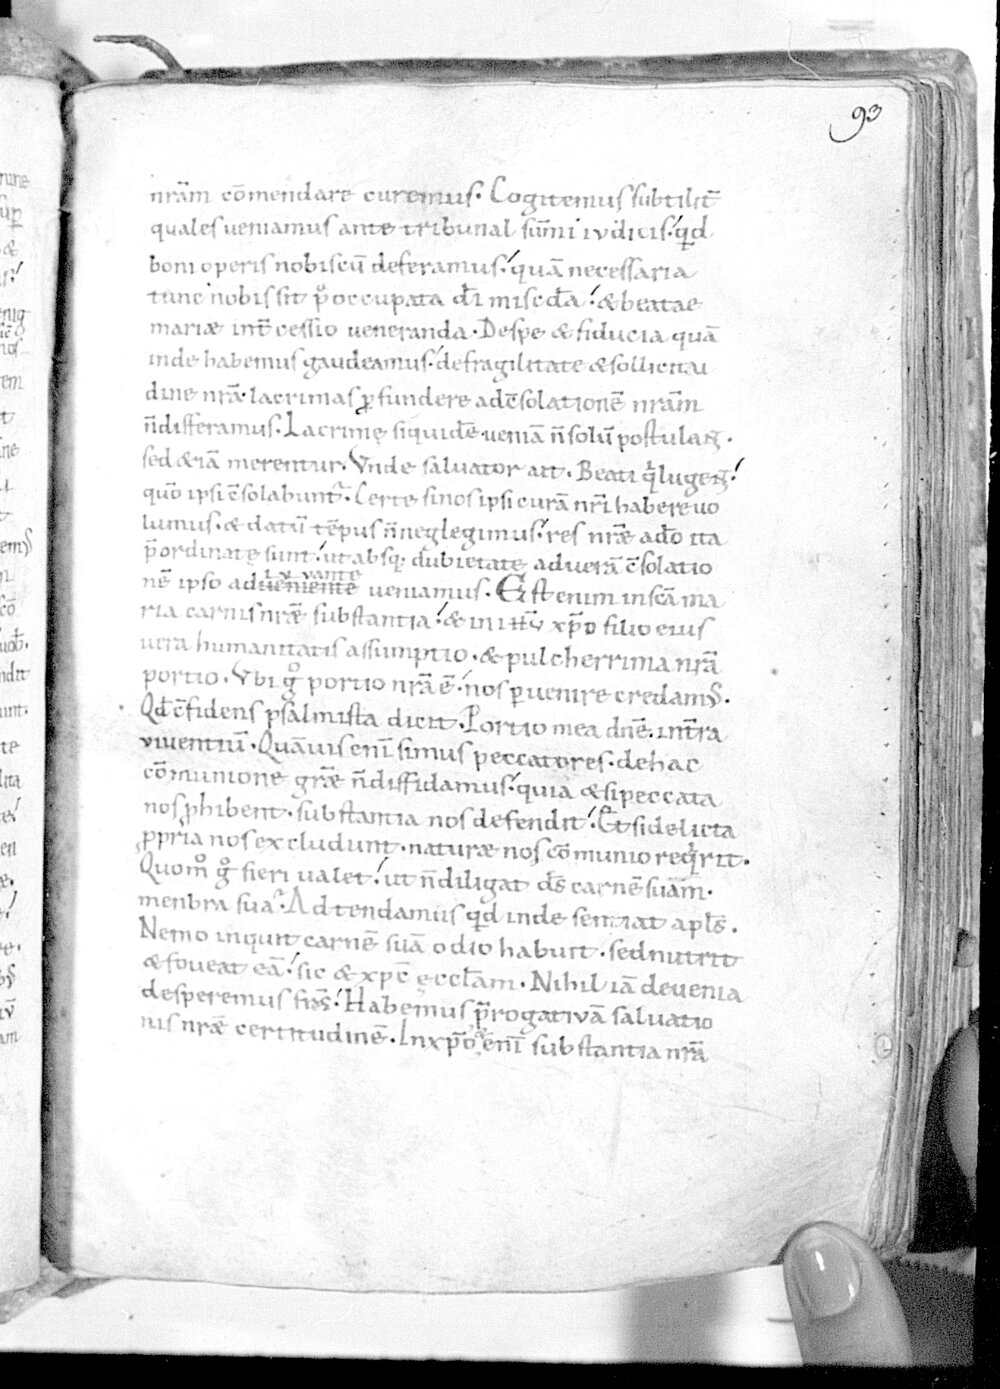 93
nr̄am cōmendare curemus. Cogitemus subtilit̄
quales ueniamus ante tribunal sūmi iudicis. qd
boni operis nobiscū deferamus. quā necessaria
tunc nobis sit p̊occupata dī miscd̄a. & beatae
mariæ int̄cessio ueneranda. Despe & fiducia quā
inde habemus gaudeamus. defragilitate & sollicitu
dine nr̄a. lacrimas ꝑfundere ad c̄solationē nr̄am
n̄ differamus. Lacrimę siquidē ueniā n̄ solū postulant̄.
sed & iā merentur. Vnde saluator ait. Beati q̇ lugent̄.
quō ipsi c̄solabunt̄. Certe si nos ipsi curā nr̄i habere uo
lumus. & datū tēpus n̄ neglegimus. res nr̄æ a dō ita
p̄ordinatę sunt. ut absq; dubietate ad uerā c̄solatio
nē ipso adueniente ueniamus. Est enim in scā ma
iuuante
ria carnis nr̄æ substantia. & in ihū xp̄o filio eius
uera humanitatis assumptio. & pulcherrima nr̄a
portio. Vbi g̊ portio nr̄a ē. nos ꝑuenire credam᷒.
Qd̄ c̄fidens psalmista dicit. Portio mea dn̄e. in tr̄a
uiuentiū. Quāuis enī simus peccatores. de hac
cōmunione gr̄æ n̄ diffidamus. quia & si peccata
nos ꝓhibent. substantia nos defendit. Et si delicta
ꝓpria nos excludunt. naturæ nos cōmunio reqrit.
Quom̊ g̊ fieri ualet. ut n̄ diligat d̄s carnē suam.
menbra sua. Adtendamus qd inde sentiat apl̄s.
Nemo inquit carnē suā odio habuit. sed nutrit
& fouet eā. sic & xp̄c ęccl̄am. Nihil iā deuenia
desperemus fr̄s. Habemus p̄rogatiuā saluatio
nis nr̄æ certitudinē. In xp̄o & enī substantia nr̄a